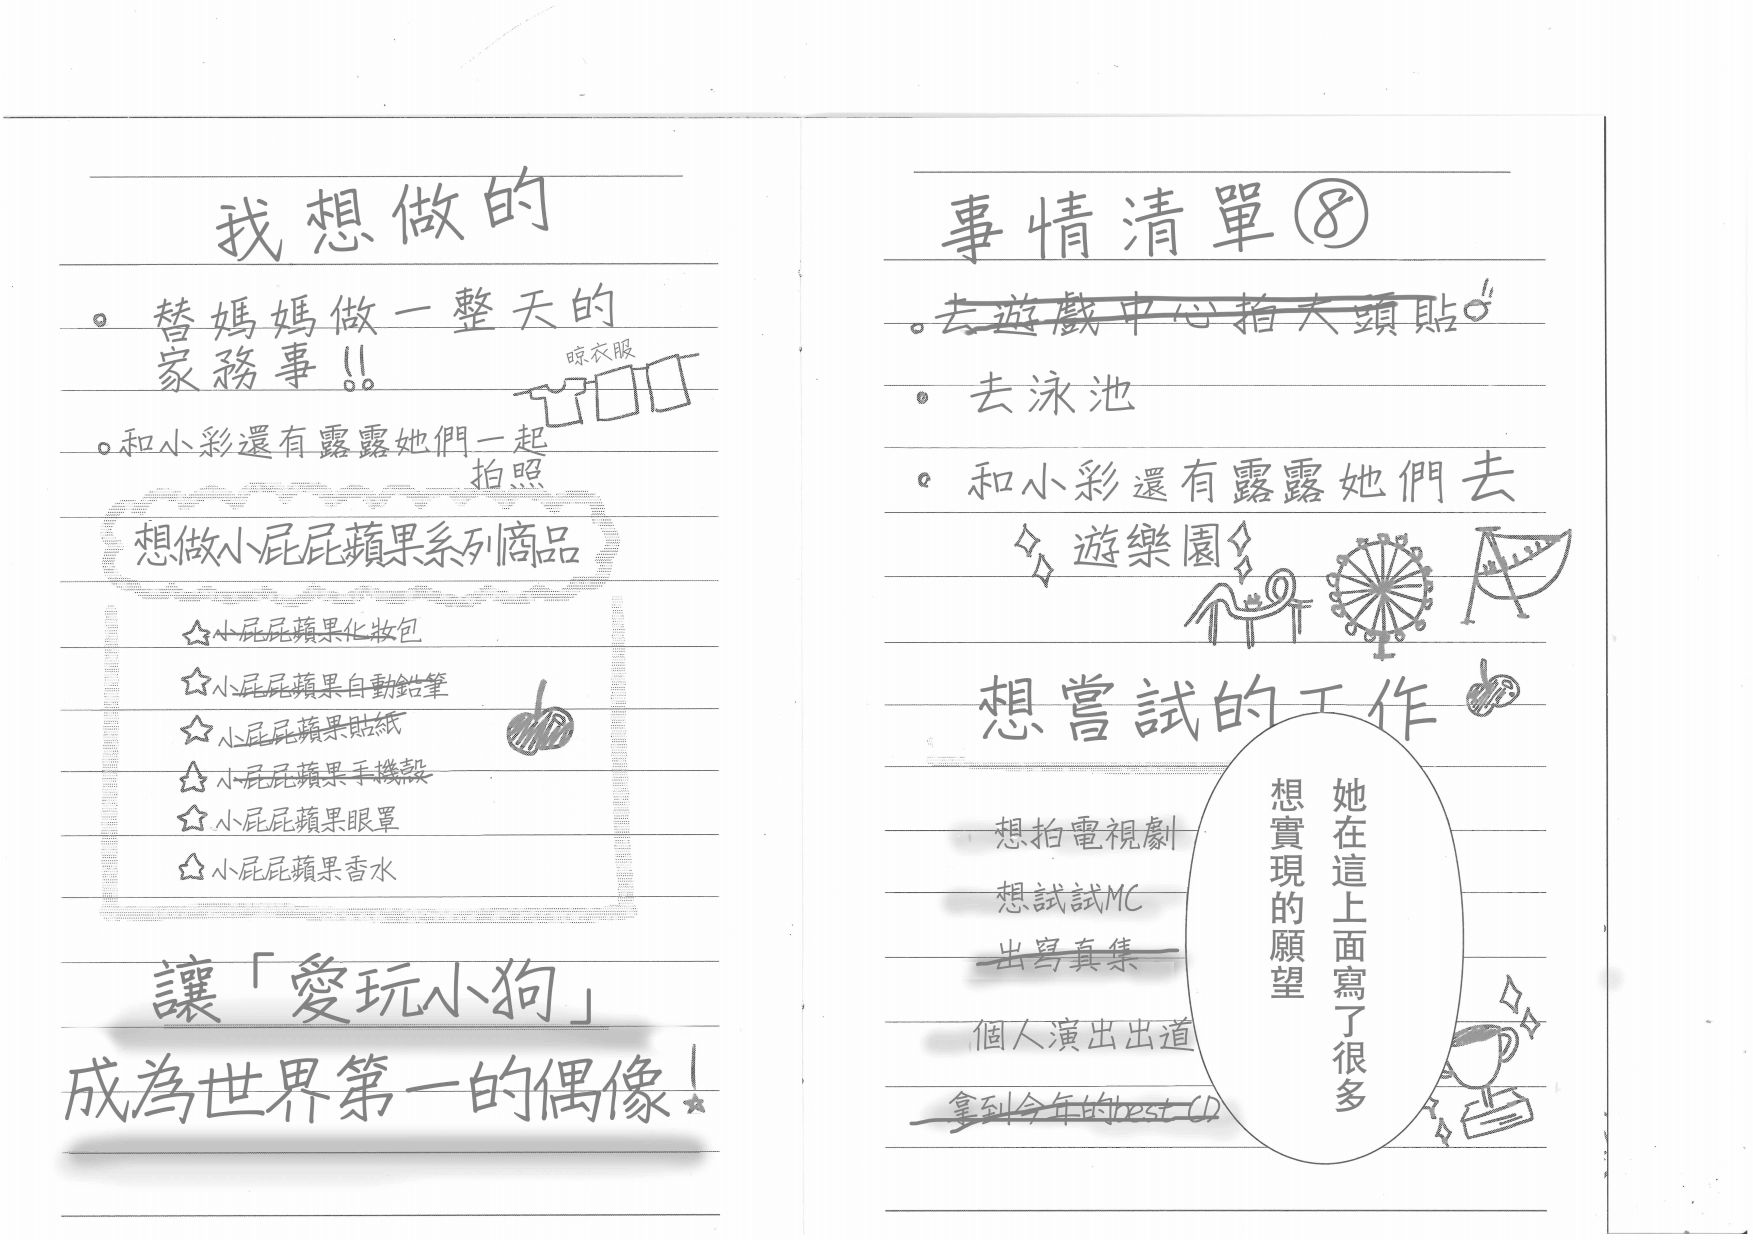 我想做的
事情清單⑧
替媽媽做一整天的
家務事!!
晾衣服
和小彩還有露露她們一起
拍照
想做小屁屁蘋果系列商品
小屁屁蘋果化妝包
小屁屁蘋果自動鉛筆
小屁屁蘋果貼紙
小屁屁蘋果手機殼
小屁屁蘋果眼罩
小屁屁蘋果香水
讓「愛玩小狗」
成為世界第一的偶像!
去遊戲中心拍大頭貼
去泳池
和小彩還有露露她們去
遊樂園
想嘗試的工作
想拍電視劇
想試試MC
出寫真集
個人演出出道
拿到今年的best CD
她在這上面寫了很多
想實現的願望